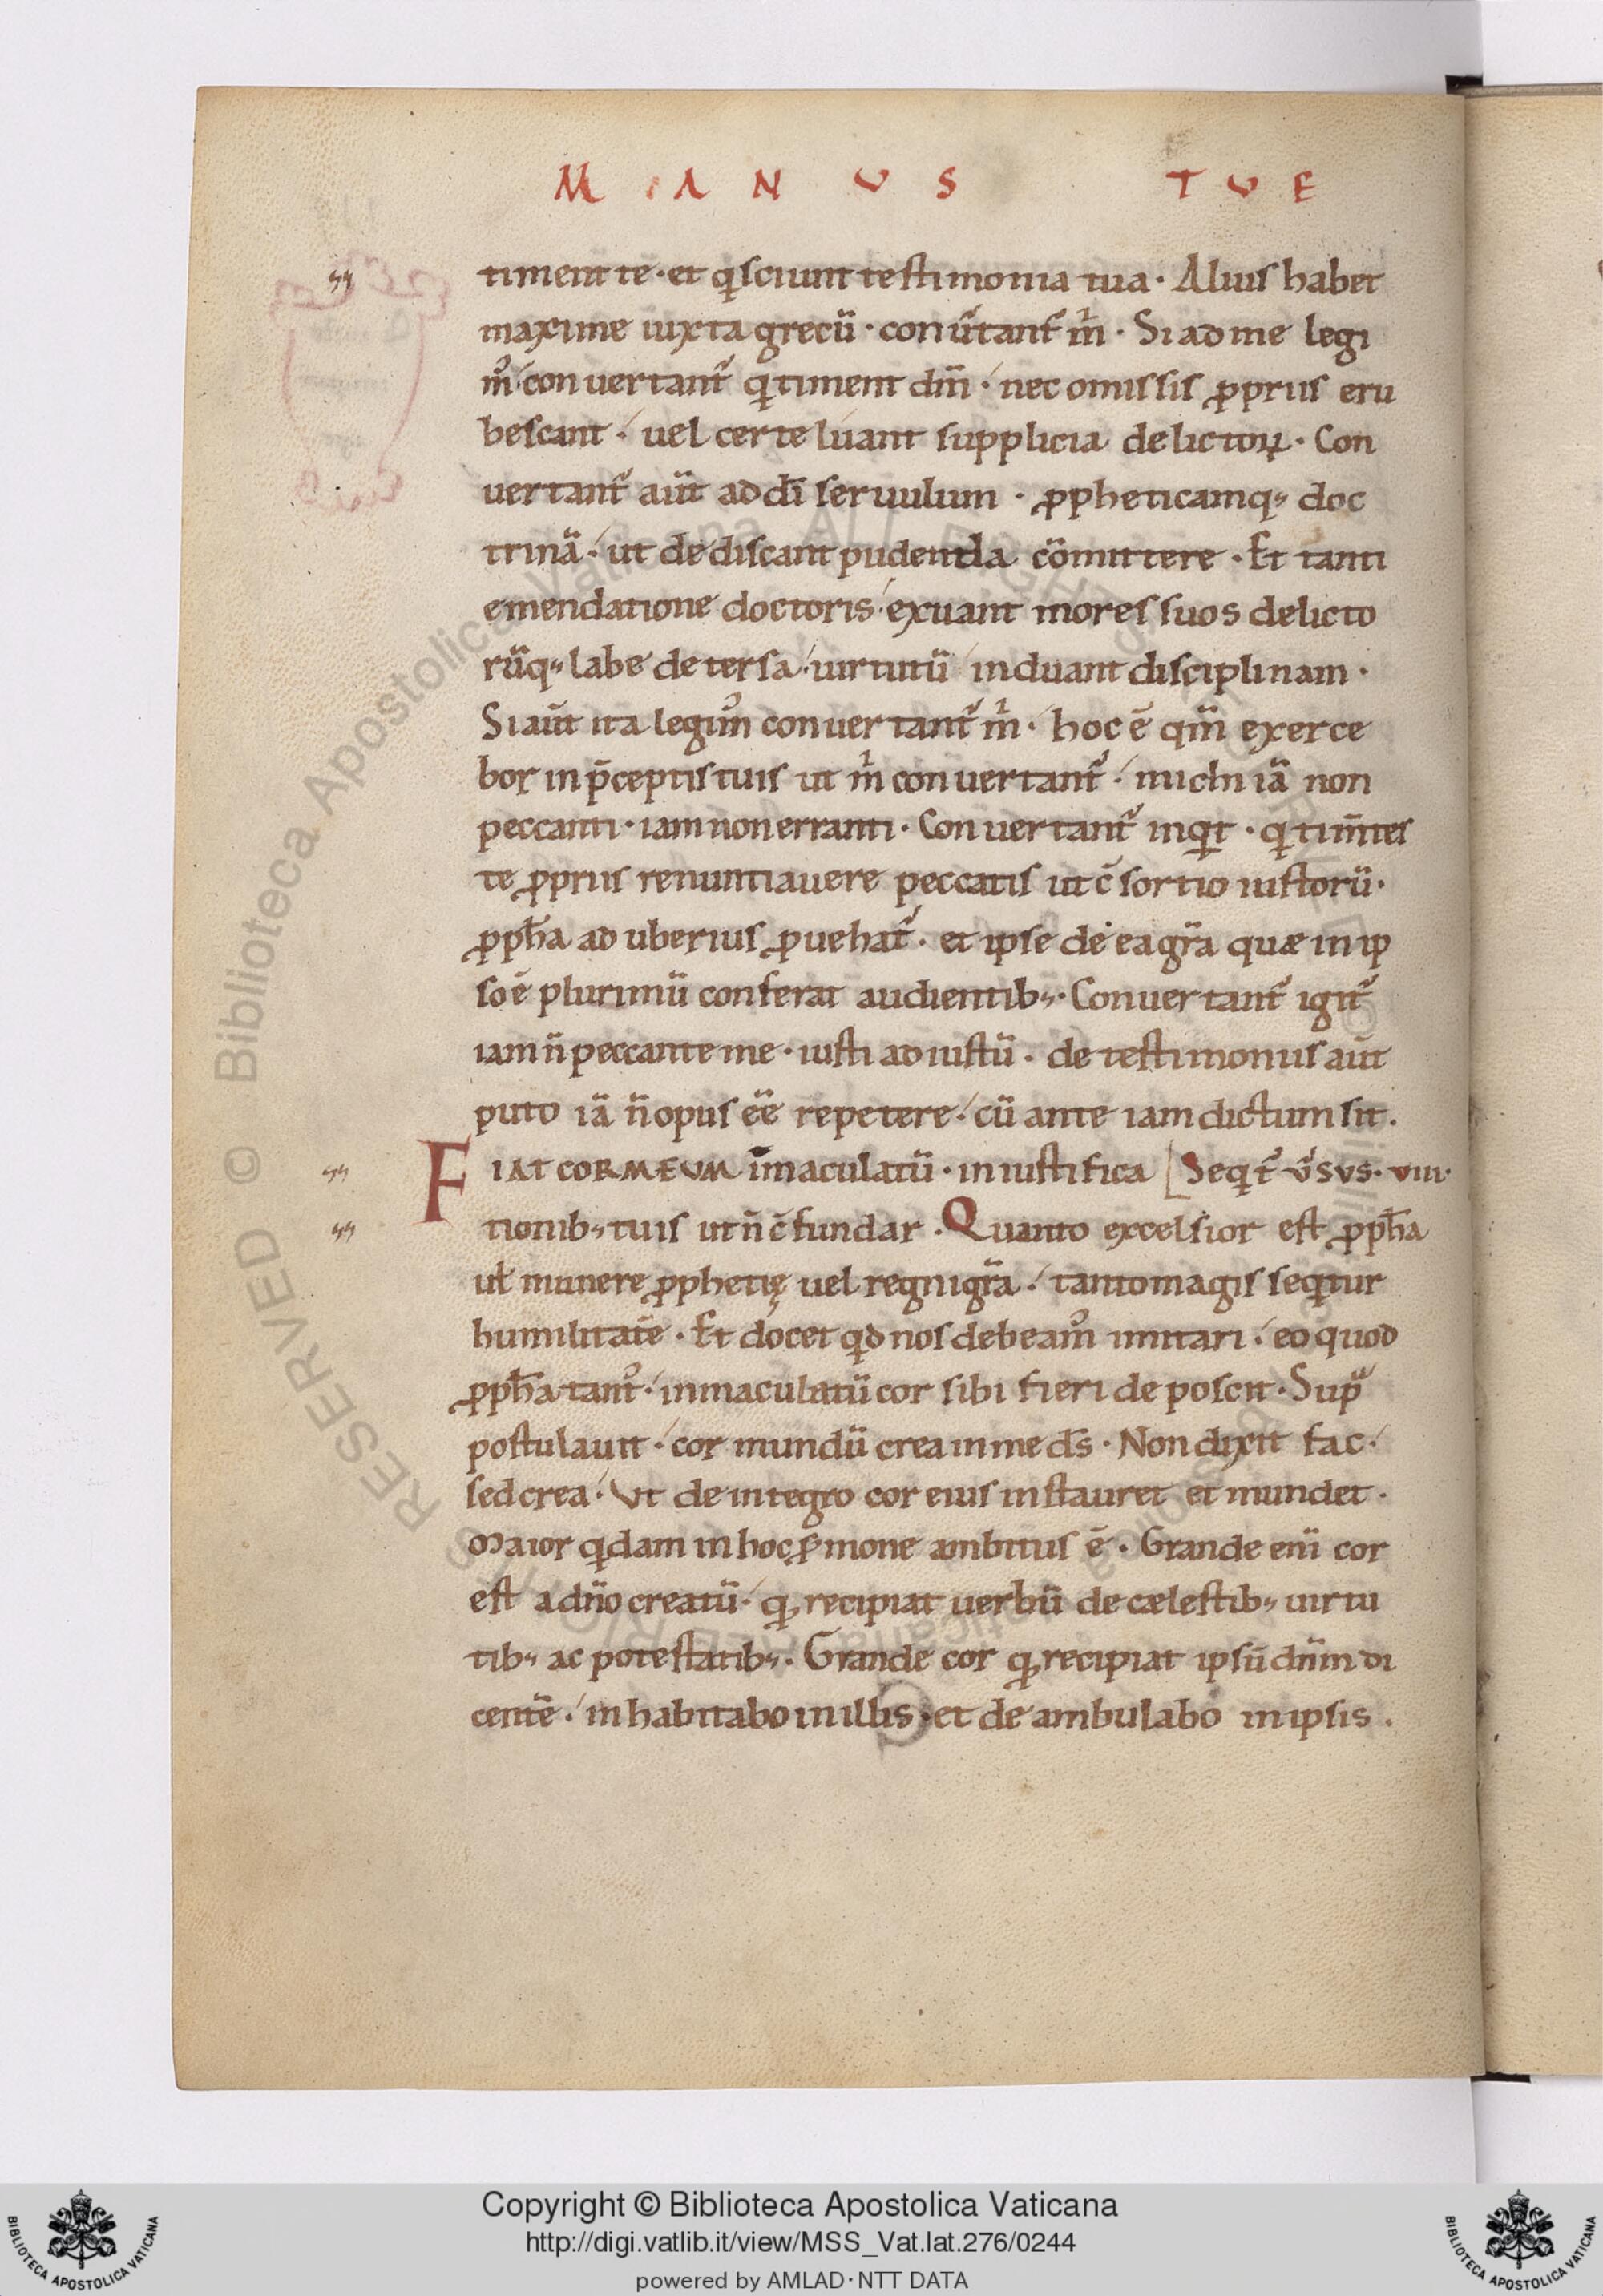 M A N U S T U E
timent te · et q̇ sciunt testimonia tua · Alius habet
maxime iuxta grecū · conūtant᷑ m̍ · Si ad me legi
m᷒ convertant᷑ q̇ timent dm̄ · nec omissis ꝓpriis eru
bescant · uel certe luant supplicia delictoꝝ · Con
uertant᷑ aūt ad dī seruulum · ꝓpheticamq; doc
trinā · ut dediscant pudenda cōmittere · Et tanti
emendatione doctoris exuant mores suos delicto
rūq; labe detersa · uirtutū induant disciplinam ·
Si aūt ita legim᷒ conuertant᷑ m̍ · hoc ē qm̄ exerce
bor in p̄ceptis tuis ut m̍ conuertant᷑ · michi iā non
peccanti · iam non erranti · Conuertant᷑ inq̇t · q̇ tim̄tes
te ꝓpriis renuntiauere peccatis ut c̄sortio iustorū ·
ꝓph̄a ad uberius ꝓuehat᷑ · et ipse de ea gr̄a quæ in ip
so ē plurimū conferat audientib; · Conuertant᷑ igit᷑
iam n̄ peccante me · iusti ad iustū · de testimoniis aūt
puto iā n̄ opus eē repetere · cū ante iam dictum sit .
FIAT COR MEUM īmaculatū · in iustifica [Seq̇t᷑ v̄sus · viii ·
tionib; tuis ut n̄ c̄fundar · Quanto excelsior est ꝓph̄a
uł munere ꝓphetię uel regni gr̄a · tanto magis seq̇tur
humilitatē · Et docet qd nos debeam᷒ imitari · eo quod
ꝓph̄a tant᷒ · inmaculatū cor sibi fieri deposcit · Sup᷑
postulauit · cor mundū crea in me ds̄ · Non dixit fac ·
sed crea · Ut de integro cor eius instauret et mundet ·
Maior q̇dam in hoc s̄mone ambitus ē · Grande enī cor
est a dn̄o creatū · qđ recipiat uerbū de cælestib; uirtu
tib; ac potestatib; · Grande cor qđ recipiat ipsū dn̄m di
centē · inhabitabo in illis · et deambulabo in ipsis .
Copyright © Biblioteca Apostolica Vaticana
http://digi.vatlib.it/view/MSS_Vat.lat.276/0244
powered by AMLAD · NTT DATA
BIBLIOTECA APOSTOLICA VATICANA
BIBLIOTECA APOSTOLICA VATICANA